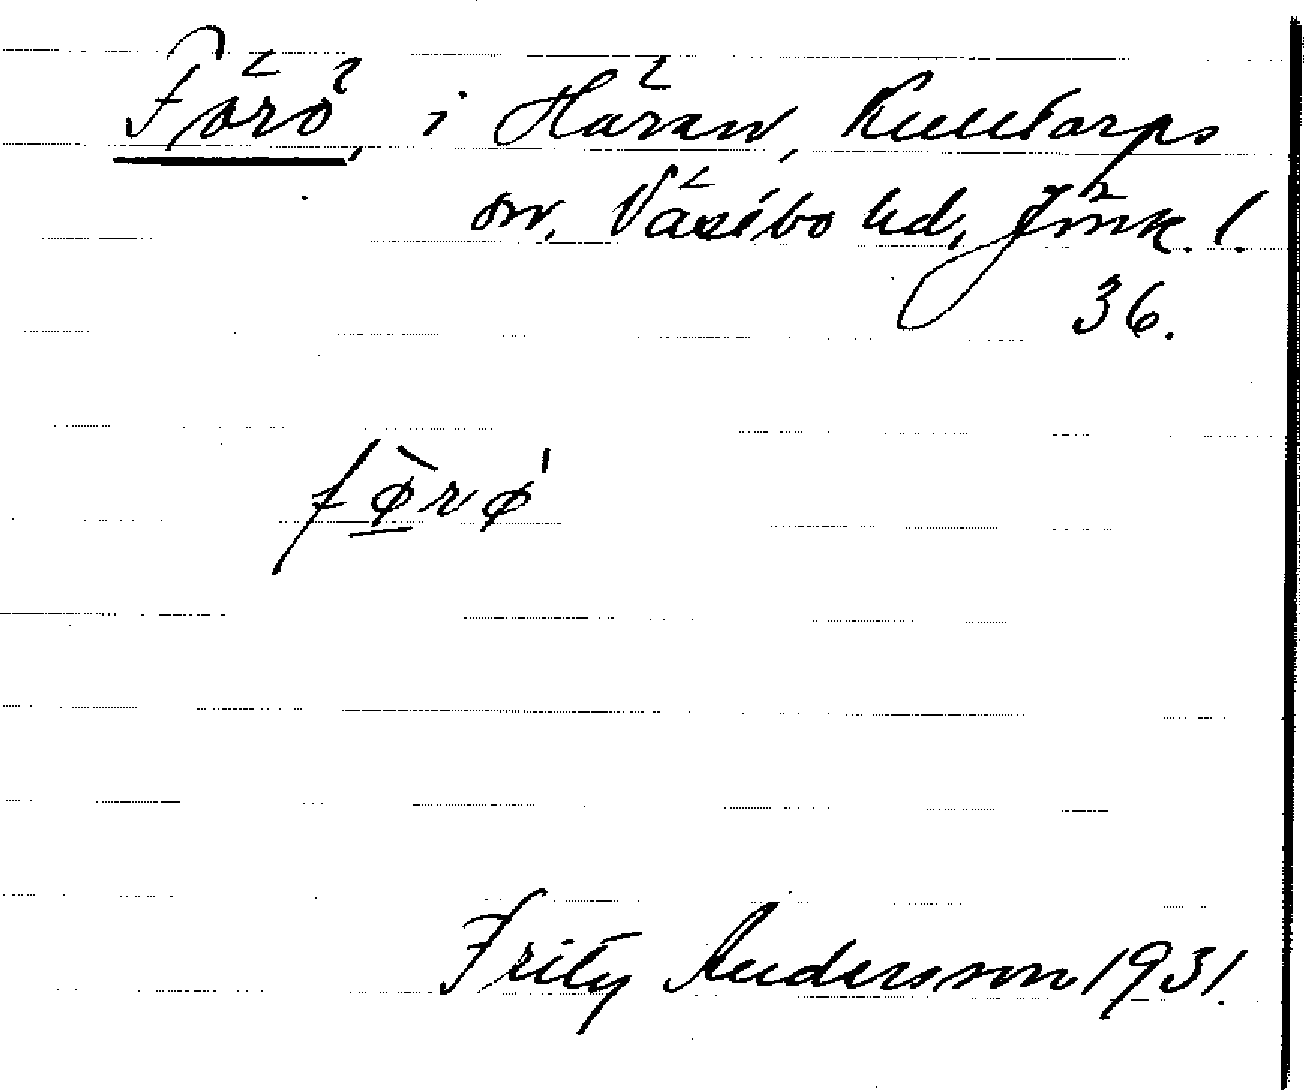 Förö, i Hären, Kulltorps
sn, Västbo hd, Jönk. l.
36.
fø̀rø'
Fritz Andersson 1931.